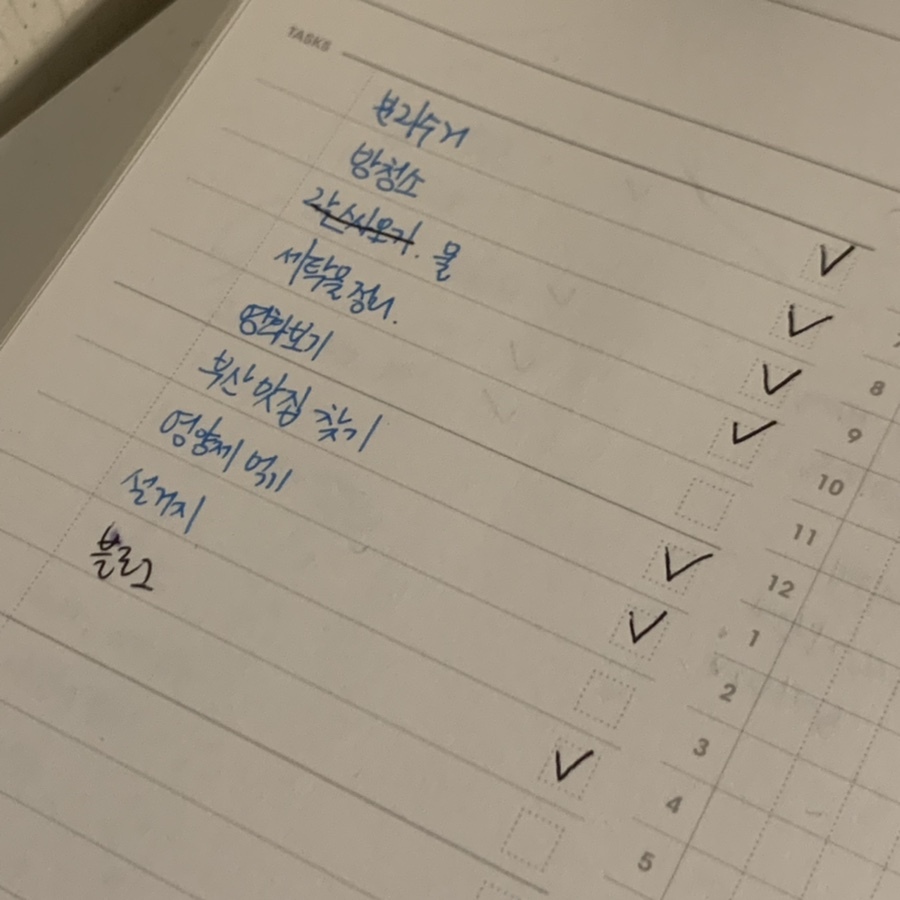 TASKS
분리수거
방청소
물
세탁물 정리.
영화보기
부산 맛집 찾기
영양제 먹기
설거지
블로그
7
8
9
10
11
12
1
2
3
4
5